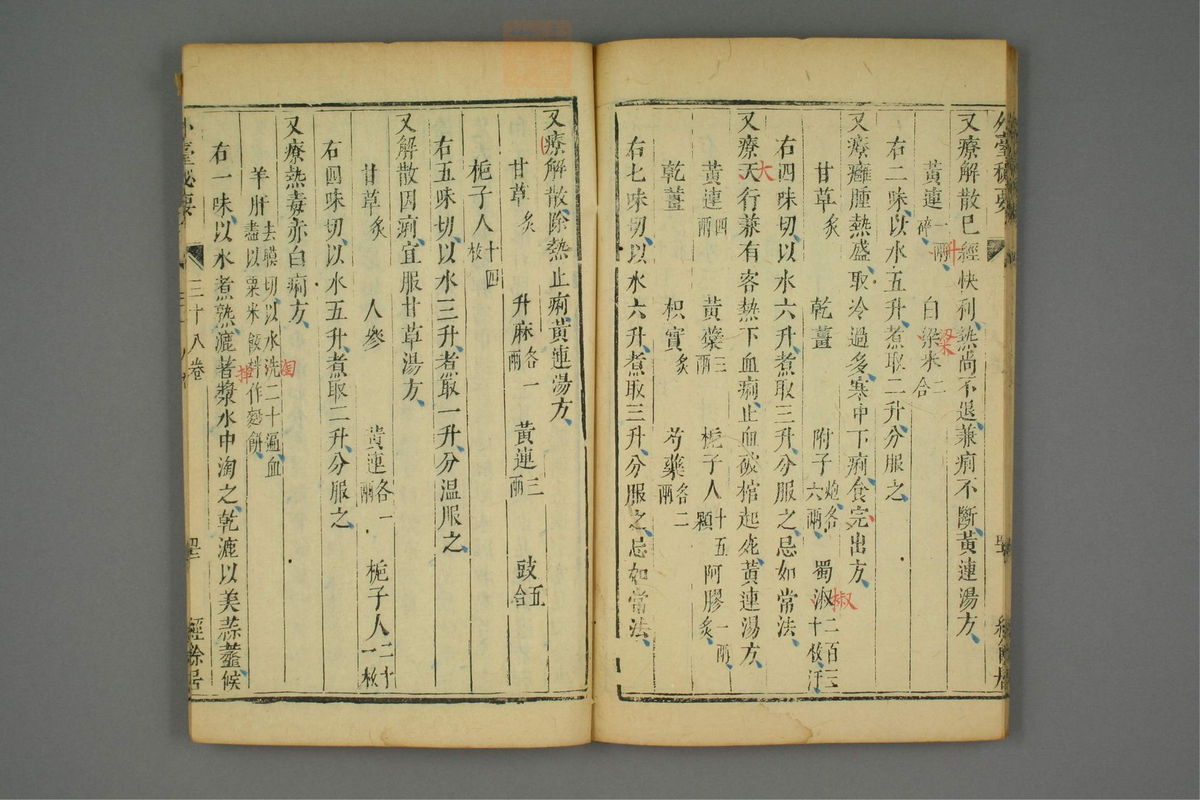 外臺秘要
又療解散巳經快利熱尚不退兼痢不斷黃連湯方
黃連一兩碎 白粱米二合
升
梁
右二味以水五升煮取二升分服之
又療癰腫熱盛取冷過多寒中下痢食完出方
甘草炙 乾薑 附子炮各六兩 蜀淑二百三十枚汗
椒
右四味切以水六升煮取三升分服之忌如常法
又療天行兼有客熱下血痢止血破棺起死黃連湯方
大
黃連四兩 黃蘗三兩 梔子人十五顆 阿膠一兩炙
乾薑 枳實炙 芍藥各二兩
右七味切以水六升煮取三升分服之忌如常法
又療解散除熱止痢黃連湯方
甘草炙 升麻各一兩 黃連三兩 豉五合
梔子人十四枚
右五味切以水三升煮取一升分温服之
又解散因痢宜服甘草湯方
甘草炙 人參 黃連各一兩 梔子人二十一枚
右四味切以水五升煮取二升分服之
又療熱毒亦白痢方
羊肝去膜切以水洗二十遍血盡以粟米飯拌作麫餅
淘
右一味以水煮熟漉著漿水中淘之乾漉以美蒜虀候
外臺秘要 三十八卷 經餘居